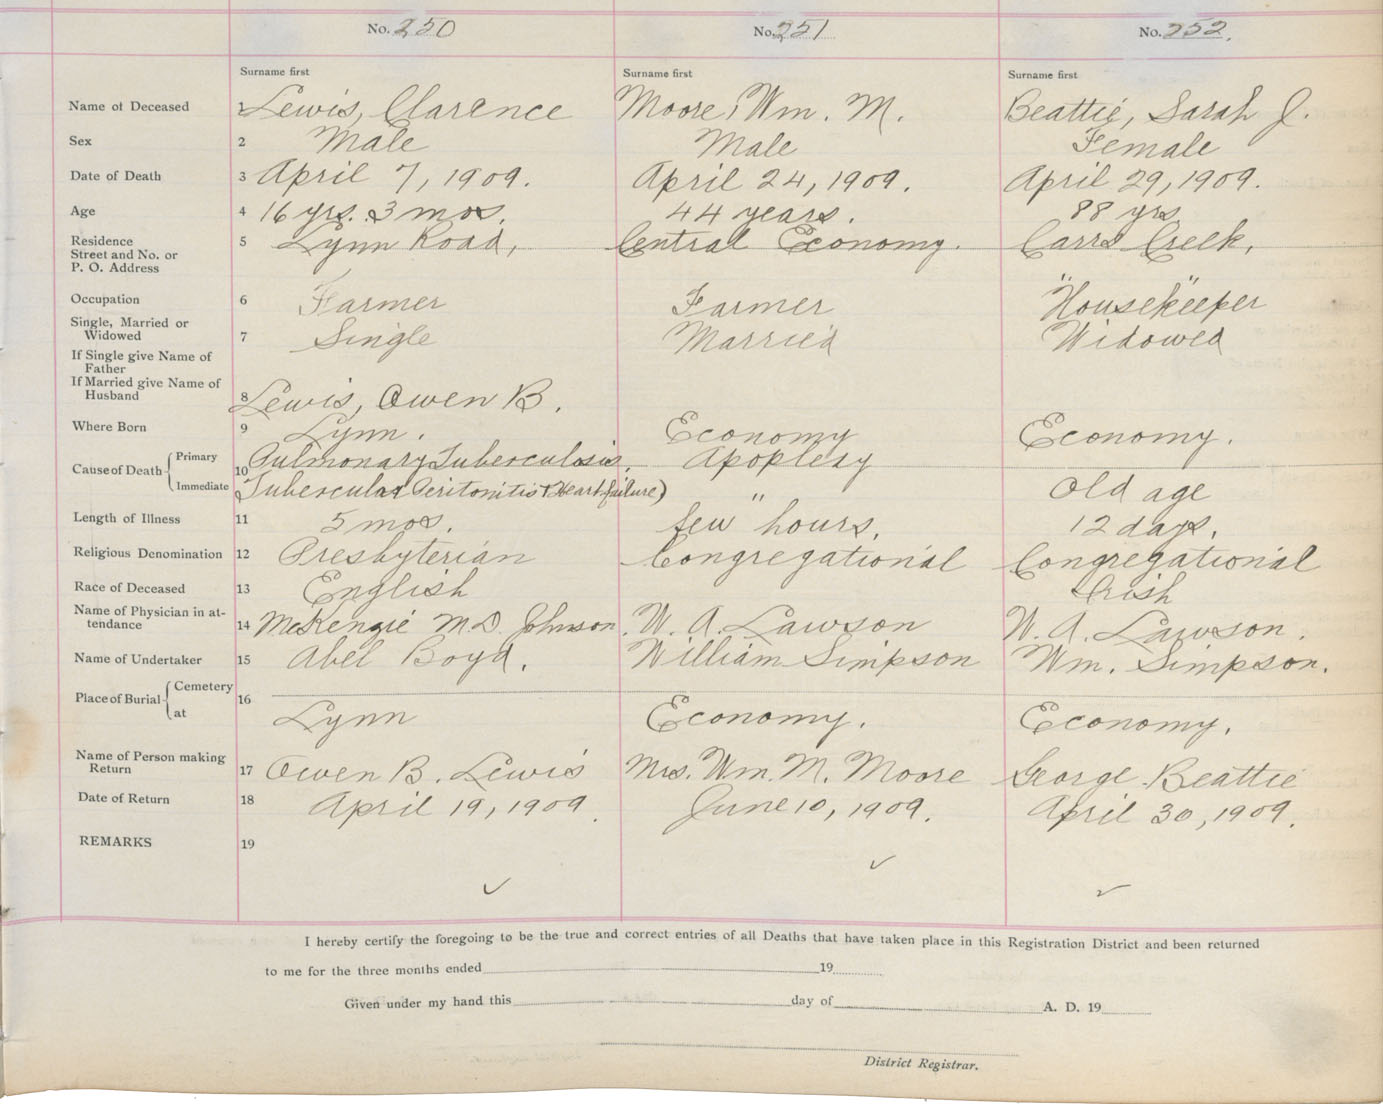 No. 250 No. 251 No. 252.
Surname first Surname first Surname first
Name of Deceased 1 Lewis, Clarence Moore, Wm. M. Beattie, Sarah J.
Sex 2 Male Male Female
Date of Death 3 April 7, 1909. April 24, 1909. April 29, 1909.
Age 4 16 yrs. 3 mos. 44 years. 88 yrs
Residence 5 Lynn Road, Central Economy. Carrs Creek,
Street and No. or
P. O. Address
Occupation 6 Farmer Farmer "Housekeeper"
Single, Married or
Widowed 7 Single Married Widowed
If Single give Name of
Father
If Married give Name of
Husband 8 Lewis, Owen B.
Where Born 9 Lynn. Economy Economy.
Cause of Death Primary 10 Pulmonary Tuberculosis, Apoplexy
Immediate Tubercular Peritonitis & Heart failure) " Old age
Length of Illness 11 5 mos. few hours. 12 days.
Religious Denomination 12 Presbyterian Congregational Congregational
Race of Deceased 13 English Irish
Name of Physician in at-
tendance 14 McKenzie M.D. Johnson. W. A. Lawson W. A. Lawson.
Name of Undertaker 15 Abel Boyd. William Simpson Wm. Simpson.
Place of Burial Cemetery 16
at Lynn Economy. Economy.
Name of Person making
Return 17 Owen B. Lewis Mrs. Wm. M. Moore George Beattie
Date of Return 18 April 19, 1909. June 10, 1909. April 30, 1909.
REMARKS 19
✓ ✓ ✓
I hereby certify the foregoing to be the true and correct entries of all Deaths that have taken place in this Registration District and been returned
to me for the three months ended 19
Given under my hand this day of A. D. 19
District Registrar.